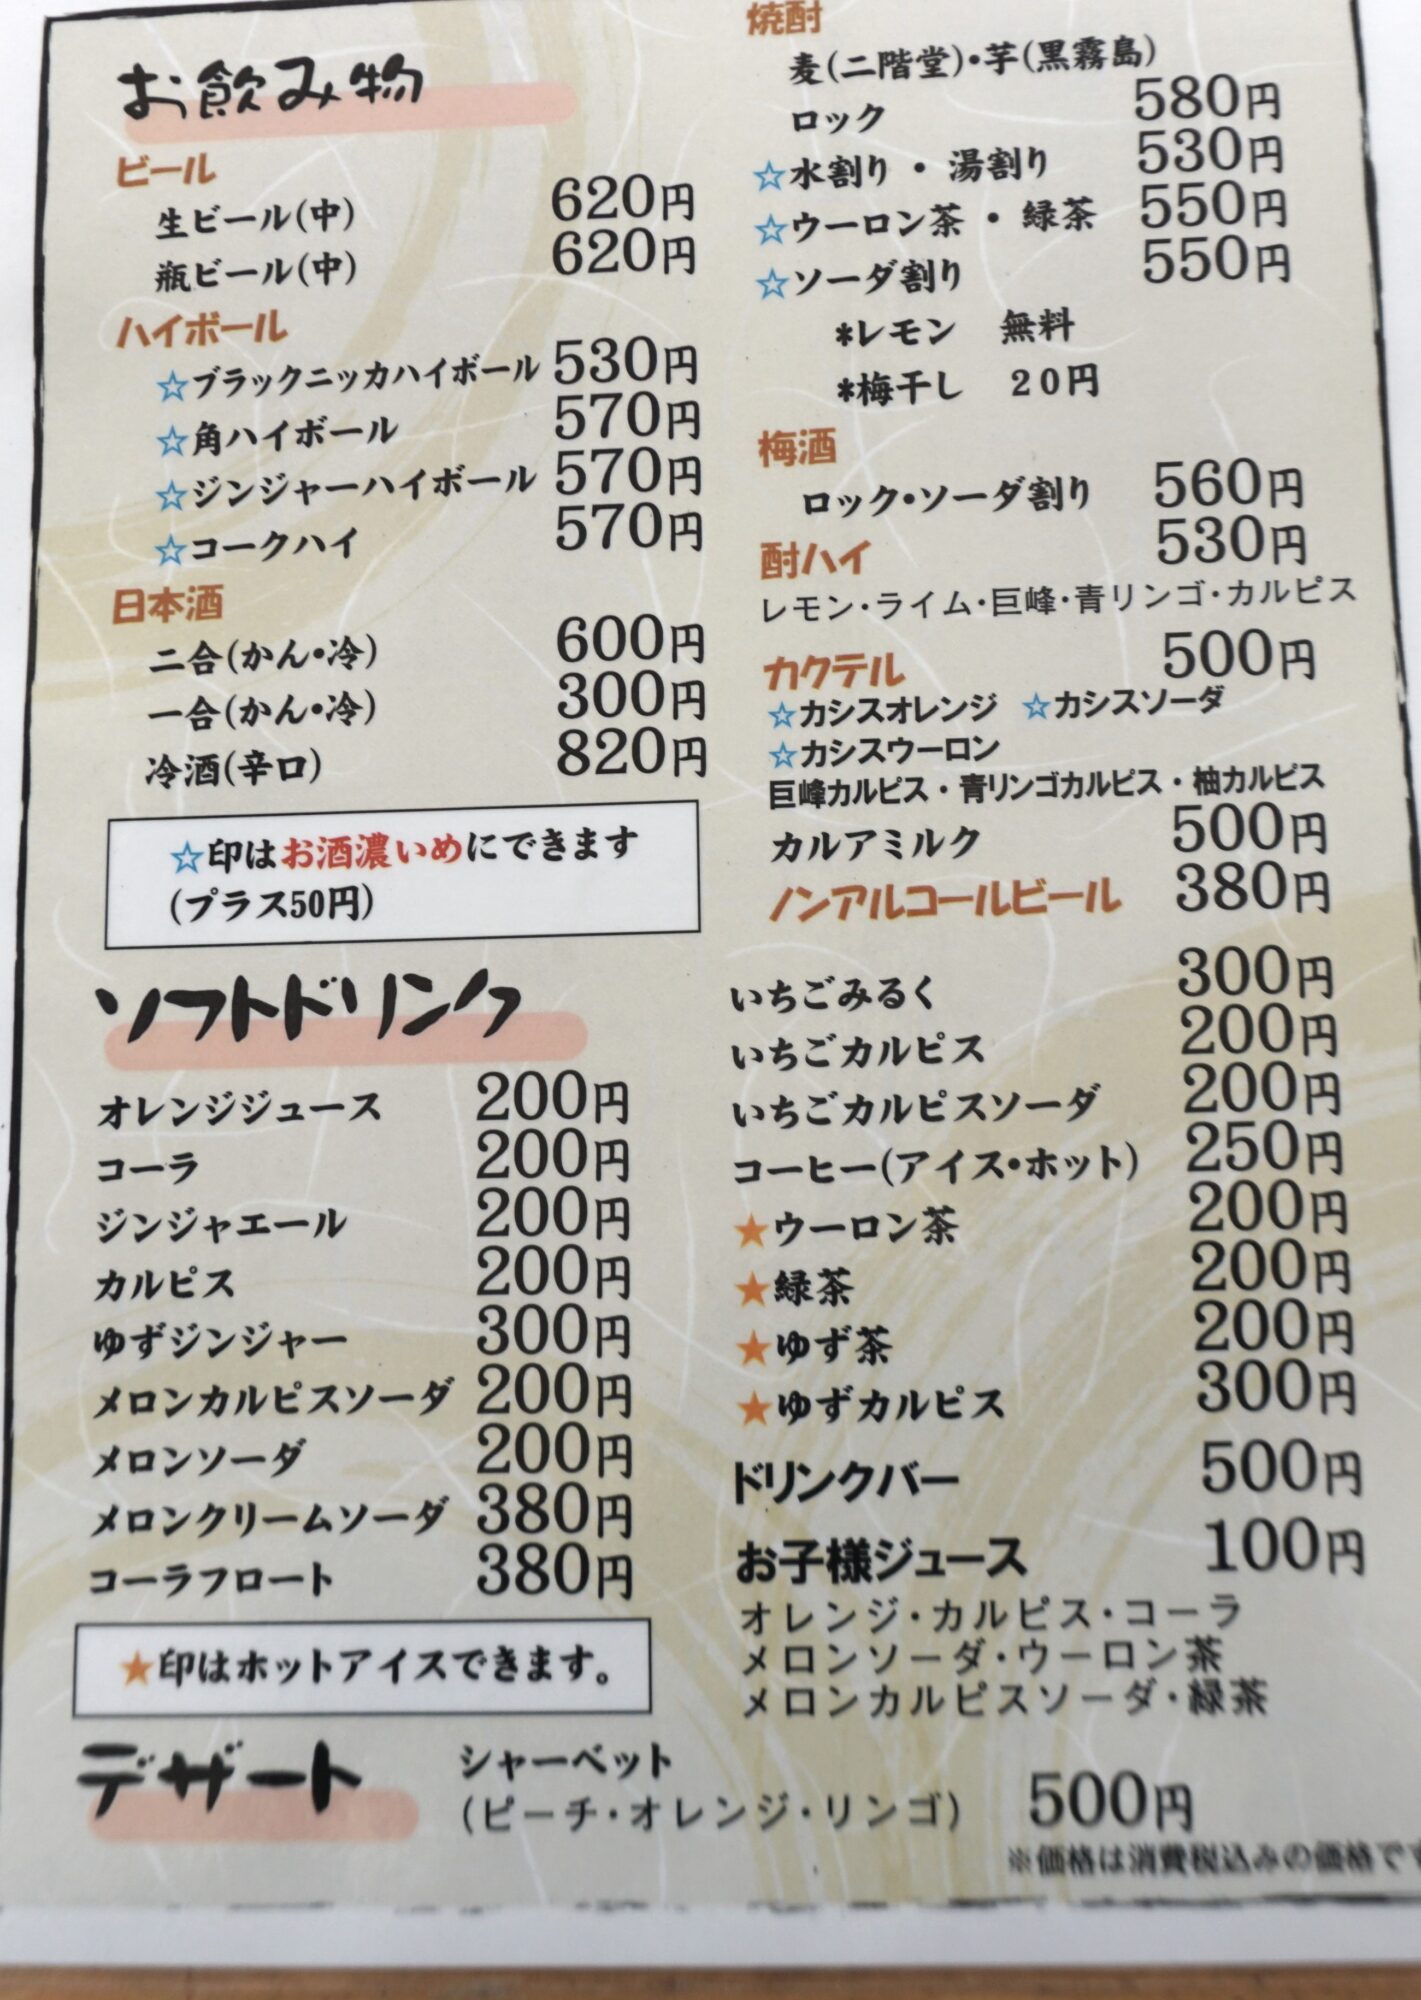 お飲み物
ビール
生ビール(中) 620円
瓶ビール(中) 620円
ハイボール
☆ブラックニッカハイボール 530円
☆角ハイボール 570円
☆ジンジャーハイボール 570円
☆コークハイ 570円
日本酒
二合(かん・冷) 600円
一合(かん・冷) 300円
冷酒(辛口) 820円
☆印はお酒濃いめにできます
(プラス50円)
焼酎
麦(二階堂)・芋(黒霧島)
ロック 580円
☆水割り・湯割り 530円
☆ウーロン茶・緑茶 550円
☆ソーダ割り 550円
*レモン 無料
*梅干し 20円
梅酒
ロック・ソーダ割り 560円
酎ハイ 530円
レモン・ライム・巨峰・青リンゴ・カルピス
カクテル 500円
☆カシスオレンジ ☆カシスソーダ
☆カシスウーロン
巨峰カルピス・青リンゴカルピス・柚カルピス
カルアミルク 500円
ノンアルコールビール 380円
ソフトドリンク
オレンジジュース 200円
コーラ 200円
ジンジャエール 200円
カルピス 200円
ゆずジンジャー 300円
メロンカルピスソーダ 200円
メロンソーダ 200円
メロンクリームソーダ 380円
コーラフロート 380円
★印はホットアイスできます。
いちごみるく 300円
いちごカルピス 200円
いちごカルピスソーダ 200円
コーヒー(アイス・ホット) 250円
★ウーロン茶 200円
★緑茶 200円
★ゆず茶 200円
★ゆずカルピス 300円
ドリンクバー 500円
お子様ジュース 100円
オレンジ・カルピス・コーラ
メロンソーダ・ウーロン茶
メロンカルピスソーダ・緑茶
デザート
シャーベット
(ピーチ・オレンジ・リンゴ) 500円
※価格は消費税込みの価格です